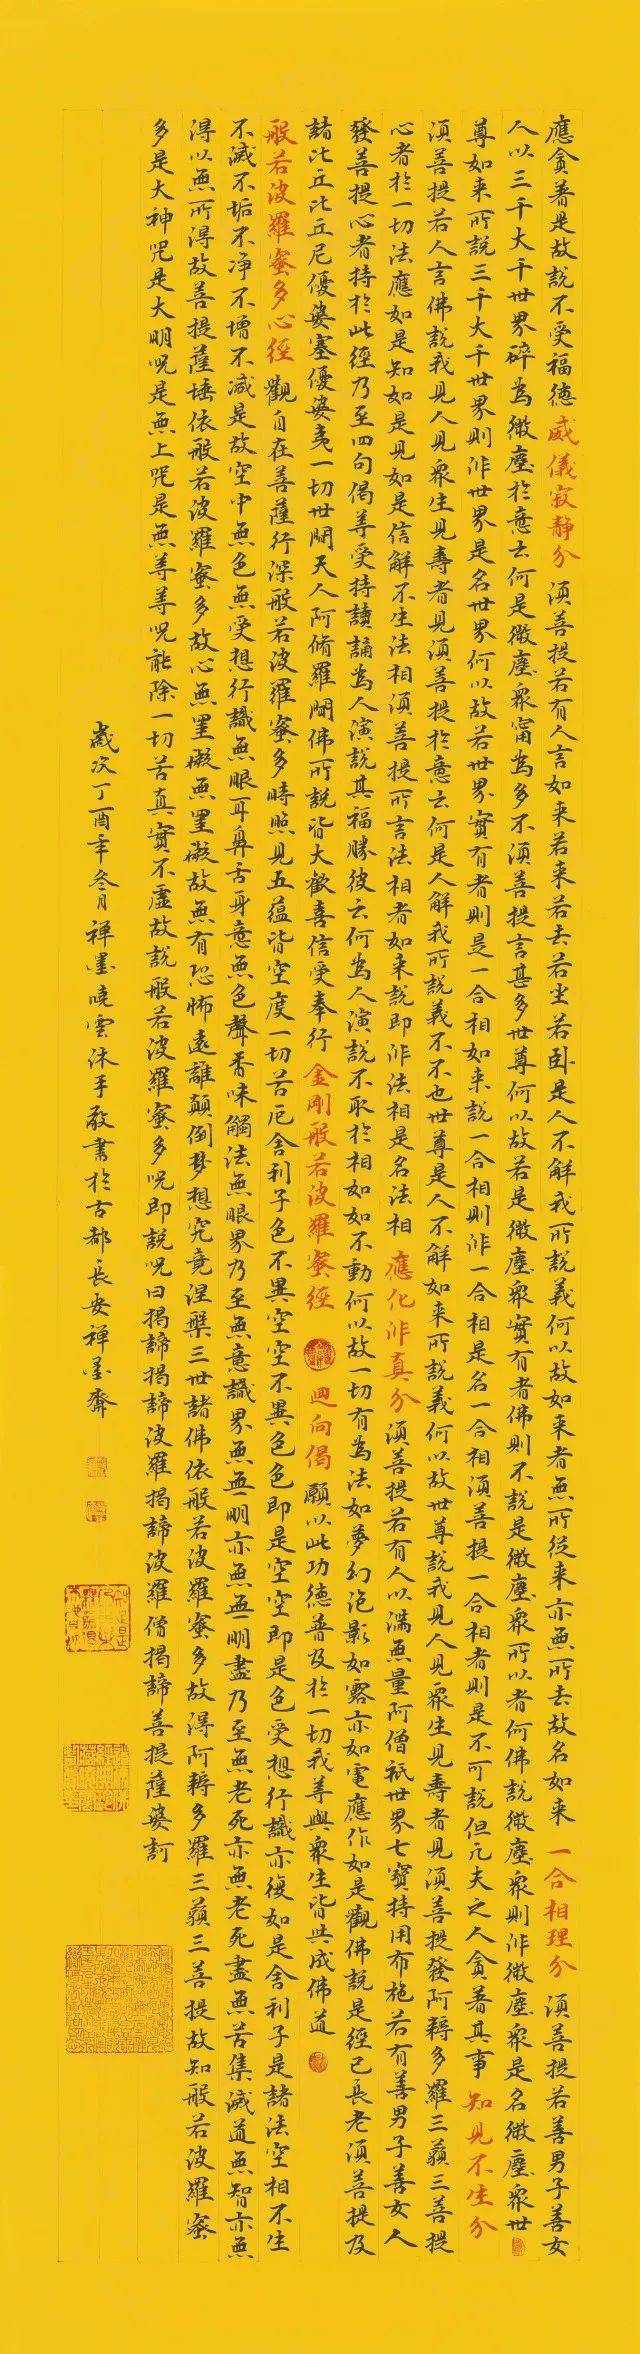 應貪著是故說不受福德威儀寂靜分須菩提若有人言如来若来若去若坐若卧是人不解我所說義何以故如来者無所從来亦無所去故名如来一合相理分須菩提若善男子善女
人以三千大千世界碎為微塵於意云何是微塵眾甯為多不須菩提言甚多世尊何以故若是微塵眾實有者佛則不說是微塵眾所以者何佛說微塵眾則非微塵眾是名微塵眾世
尊如来所說三千大千世界則非世界是名世界何以故若世界實有者則是一合相如来說一合相則非一合相是名一合相須菩提一合相者則是不可說但凡夫之人貪著其事知見不生分
須菩提若人言佛說我見人見眾生見壽者見須菩提於意云何是人解我所說義不不也世尊是人不解如来所說義何以故世尊說我見人見眾生見壽者見須菩提發阿耨多羅三藐三菩提
心者於一切法應如是知如是見如是信解不生法相須菩提所言法相者如来說即非法相是名法相應化非真分須菩提若有人以滿無量阿僧祇世界七寶持用布施若有善男子善女人
發菩提心者持於此經乃至四句偈等受持讀誦為人演說其福勝彼云何為人演說不取於相如如不動何以故一切有為法如夢幻泡影如露亦如電應作如是觀佛說是經已長老須菩提及
諸比丘比丘尼優婆塞優婆夷一切世間天人阿脩羅聞佛所說皆大歡喜信受奉行金剛般若波羅蜜經迴向偈願以此功德普及於一切我等與眾生皆共成佛道
般若波羅蜜多心經觀自在菩薩行深般若波羅蜜多時照見五蘊皆空度一切苦厄舍利子色不異空空不異色色即是空空即是色受想行識亦復如是舍利子是諸法空相不生
不滅不垢不净不增不減是故空中無色無受想行識無眼耳鼻舌身意無色聲香味觸法無眼界乃至無意識界無無明亦無無明盡乃至無老死亦無老死盡無苦集滅道無智亦無
得以無所得故菩提薩埵依般若波羅蜜多故心無罣礙無罣礙故無有恐怖遠離顛倒梦想究竟涅槃三世諸佛依般若波羅蜜多故得阿耨多羅三藐三菩提故知般若波羅蜜
多是大神咒是大明咒是無上咒是無等等咒能除一切苦真實不虛故說般若波羅蜜多咒即說咒曰揭諦揭諦波羅揭諦波羅僧揭諦菩提薩婆訶
歲次丁酉年冬月禪墨曉雲沐手敬書於古都長安禪墨齋